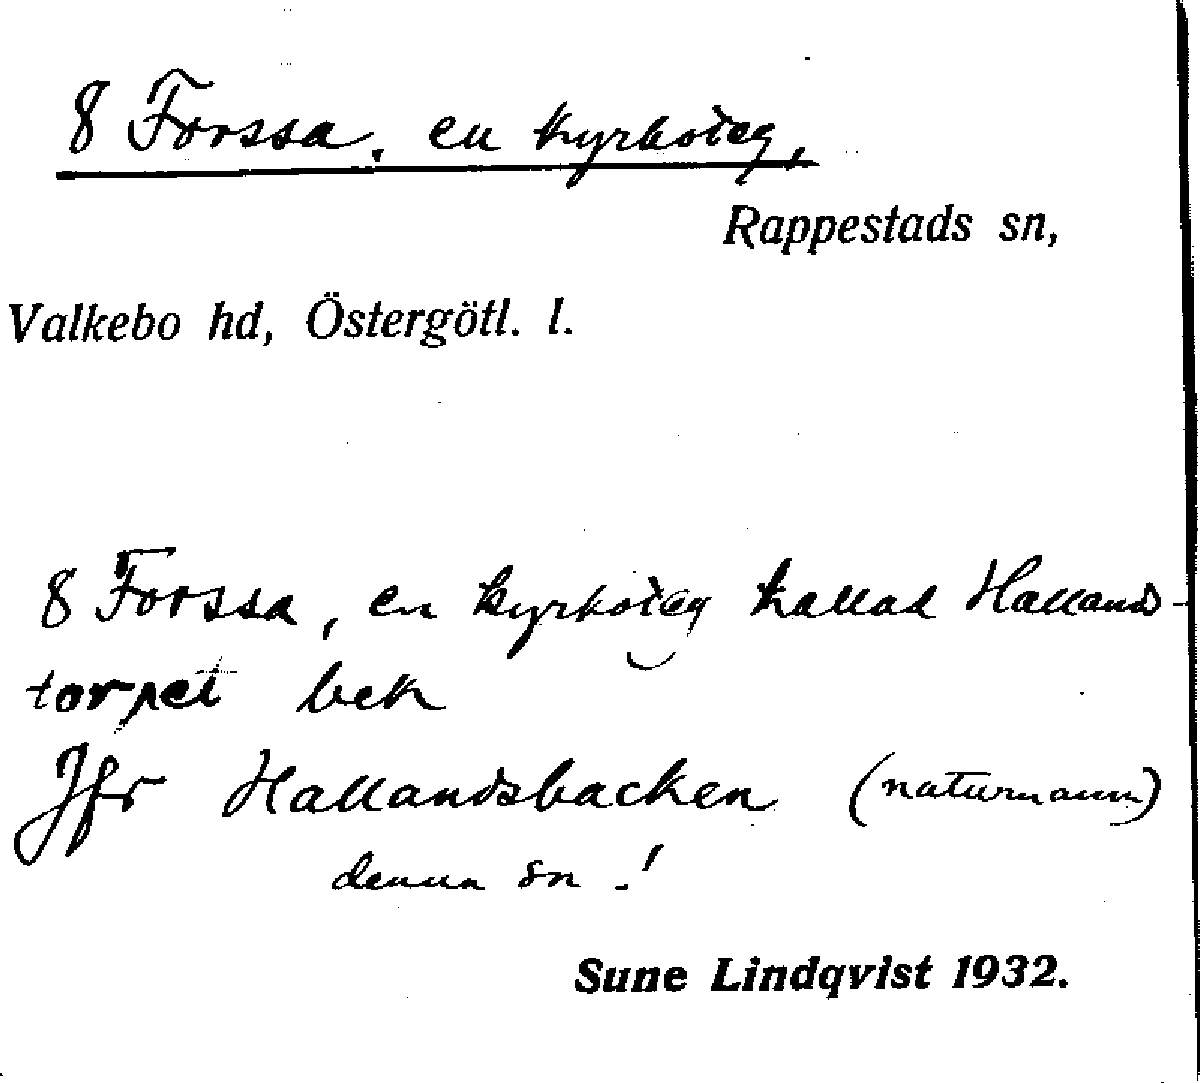 8 Forssa, en kyrkoteg,
Rappestads sn,
Valkebo hd, Östergötl. l.
8 Forssa, en kyrkoteg kallad Hallands-
torpet bek
Jfr Hallandsbacken (naturnamn)
denna sn.!
Sune Lindqvist 1932.